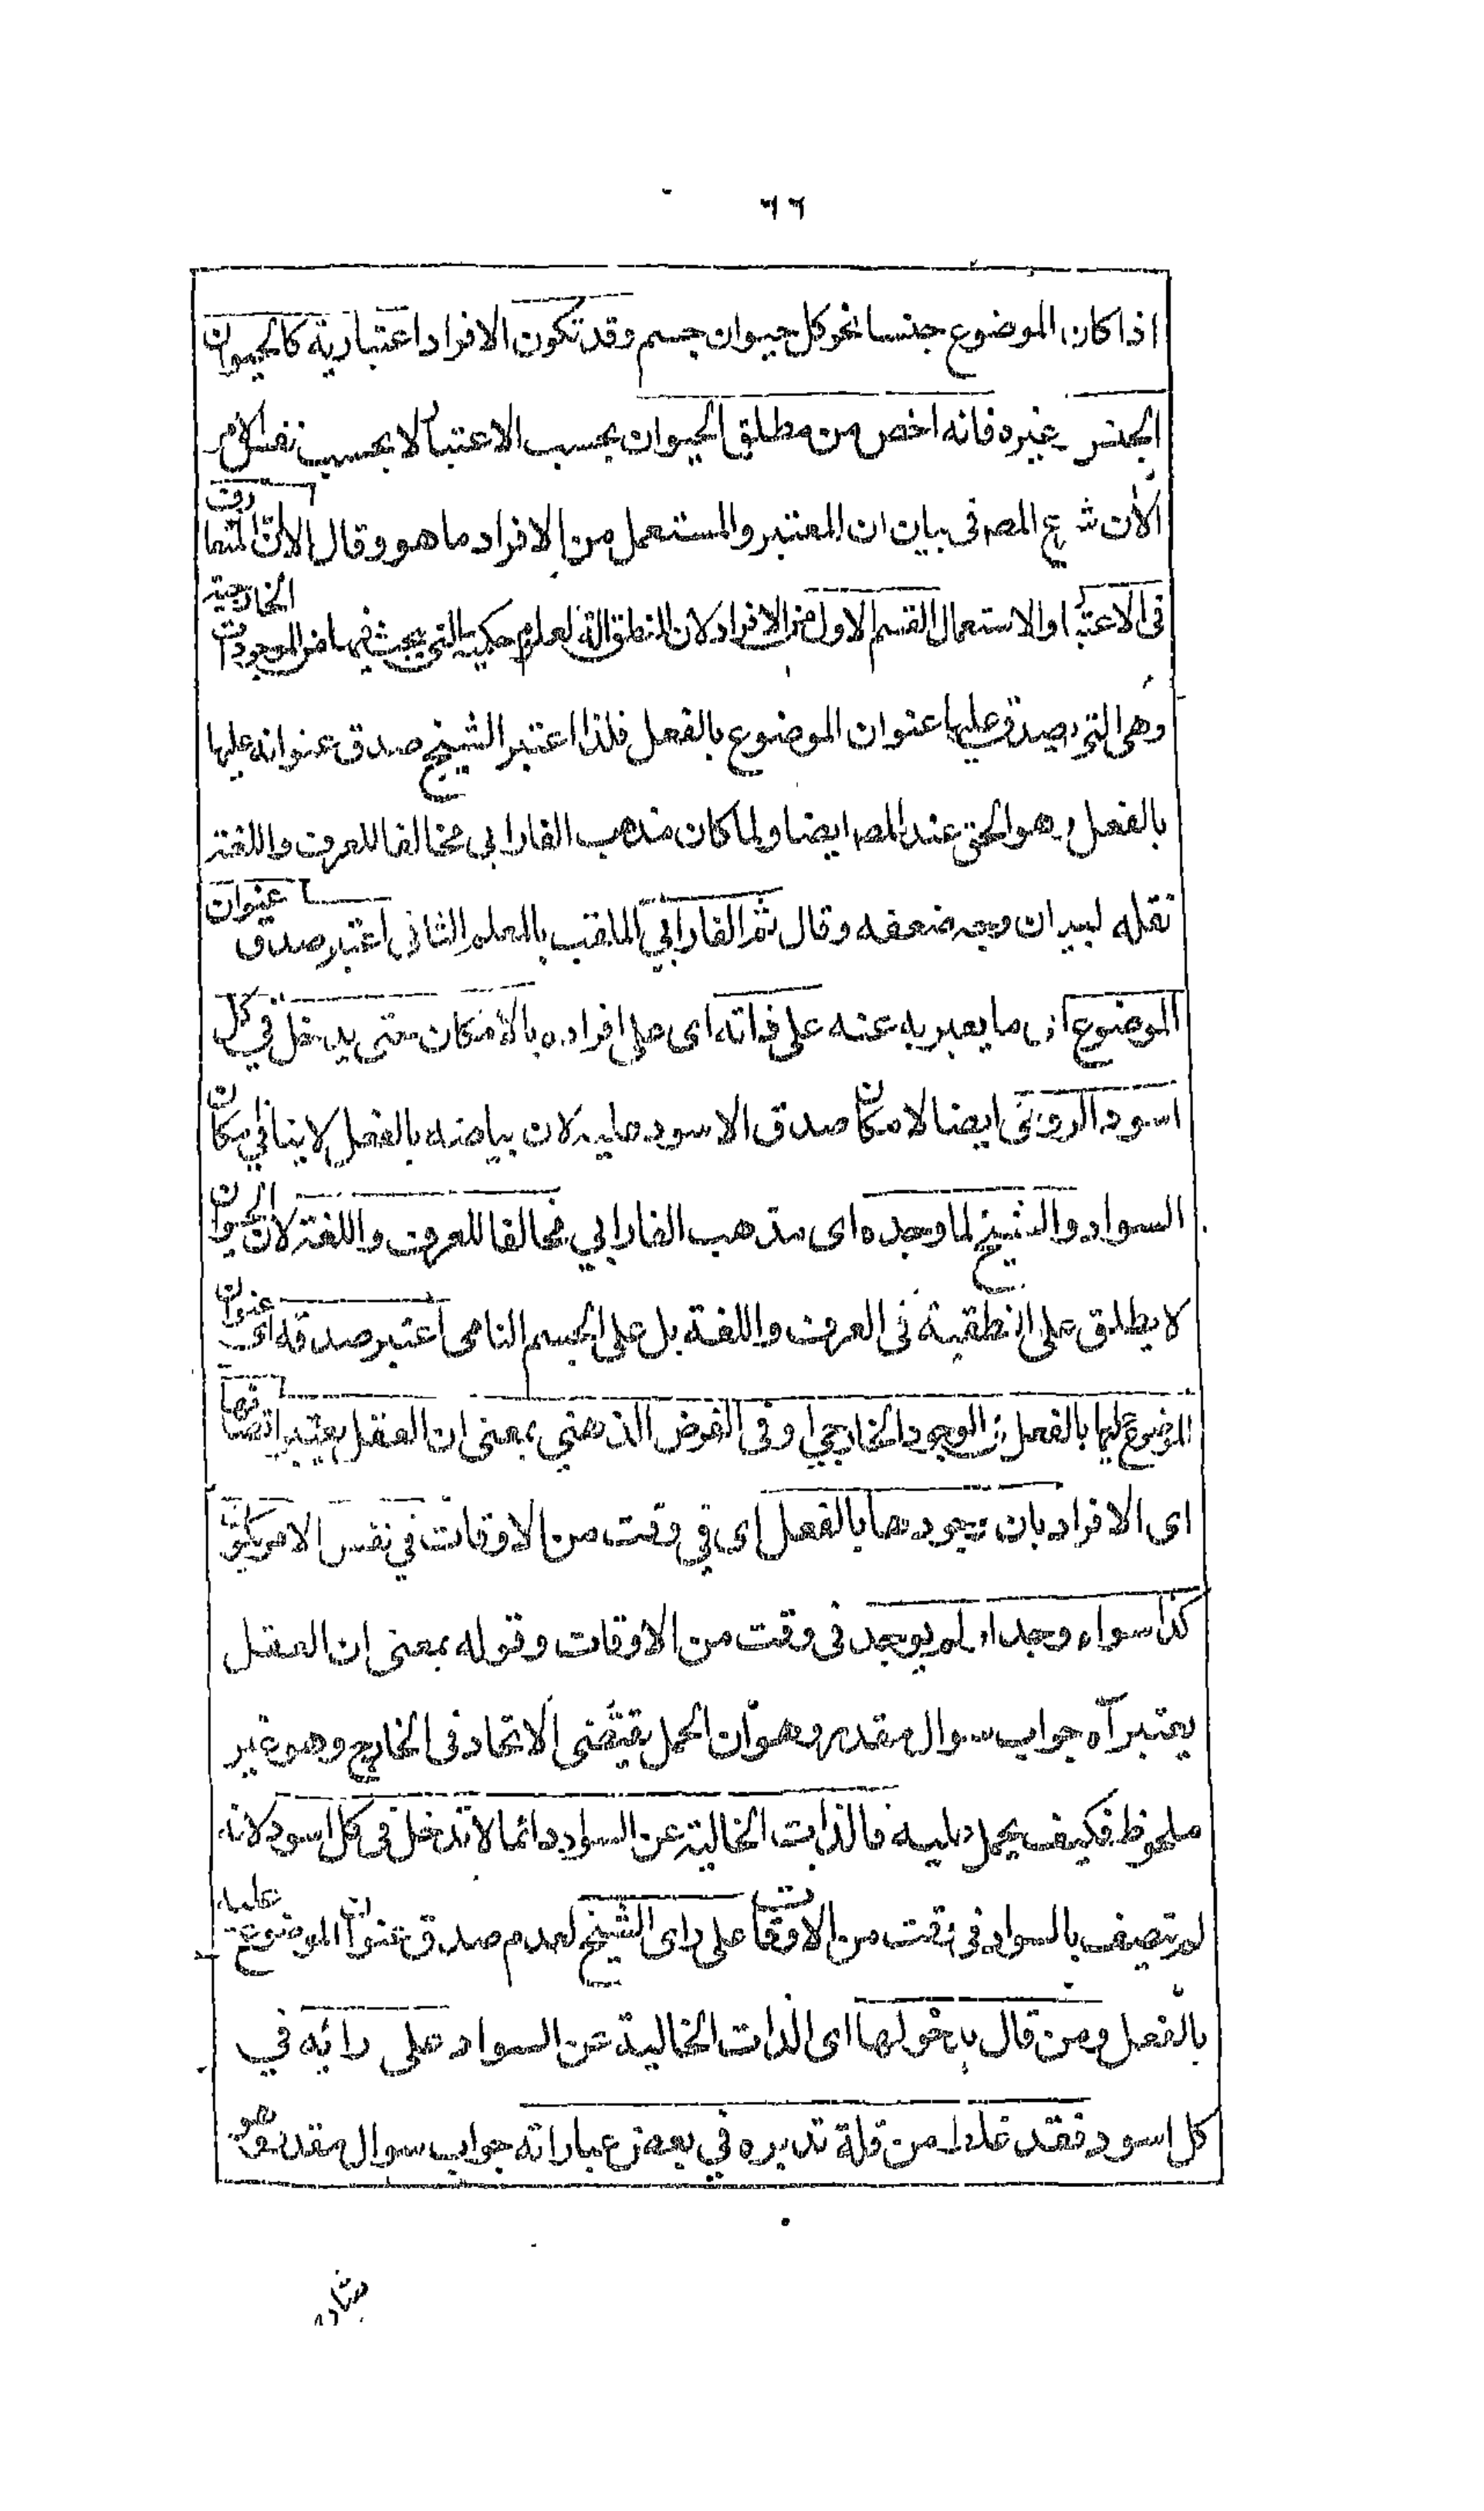 ٦٦
اذا كان الموضوع جنسا نحو كل حيوان جسم وقد تكون الافراد اعتبارية كالحيوان
الجنس غيره فانه اخص من مطلق الحيوان بحسب الاعتبار لا بحسب نفس الامر
الان شرع المصـ فى بيان ان المعتبر والمستعمل من الافراد ما هو وقال الا ان المتعارف
فى الاعتبار او الاستعمال القسم الاول من الافراد لان المنطق الة لعلوم حكمية التى يبحث فيها من الموجودات الخارجية
وهى التى يصدق عليها عنوان الموضوع بالفعل فلذا اعتبر الشيخ صدق عنوانه عليها
بالفعل وهو الحق عند المصـ ايضا ولما كان مذهب الفارابى مخالفا للعرف واللغة
نقله لبيان وجه ضعفه وقال ثم الفارابي الملقب بالمعلم الثانى اعتبر صدق عنوان
الموضوع اى ما يعبر به عنه على ذاته اى على افراده بالامكان حتى يدخل في كل
اسود الرومى ايضا لامكان صدق الاسود عليه لان بياضه بالفعل لا ينافي امكان
السواد والشيخ لما وجده اى مذهب الفارابي مخالفا للعرف واللغة لان الحيوان
لا يطلق على النطفة فى العرف واللغة بل على الجسم النامى اعتبر صدقه اى عنوان
الموضوع عليها بالفعل فى الوجود الخارجى او فى الفرض الذهنى بمعنى ان العقل يعتبر اتصافها
اى الافراد بان وجودها بالفعل اى في وقت من الاوقات في نفس الامر يكون
كذا سواء وجد او لم يوجد فى وقت من الاوقات وقوله بمعنى ان العقل
يعتبر آه جواب سوال مقدر وهو ان الحمل يقتضى الاتحاد فى الخارج وهو غير
ملحوظ فكيف يحمل عليه فالذات الخالية عن السواد دائما لا تدخل فى كل اسود لانه
لم تتصف بالسواد فى وقت من الاوقات على راى الشيخ لعدم صدق عنوان الموضوع عليه
بالفعل ومن قال بدخولها اى الذات الخالية عن السواد على رائه في
كل اسود فقد غلط من قلة تدبره في بعض عباراته جواب سوال مقدر وهو